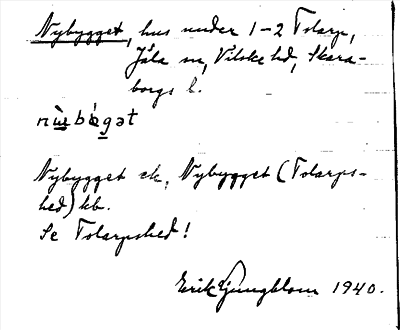 Nybygget, hus under 1-2 Tolarp,
Jäla sn, Vilske hd, Skara-
borgs l.
Nybygget ek, Nybygget (Tolarps-
hed) kb.
Se Tolarpshed!
Erik Ljungblom 1940.